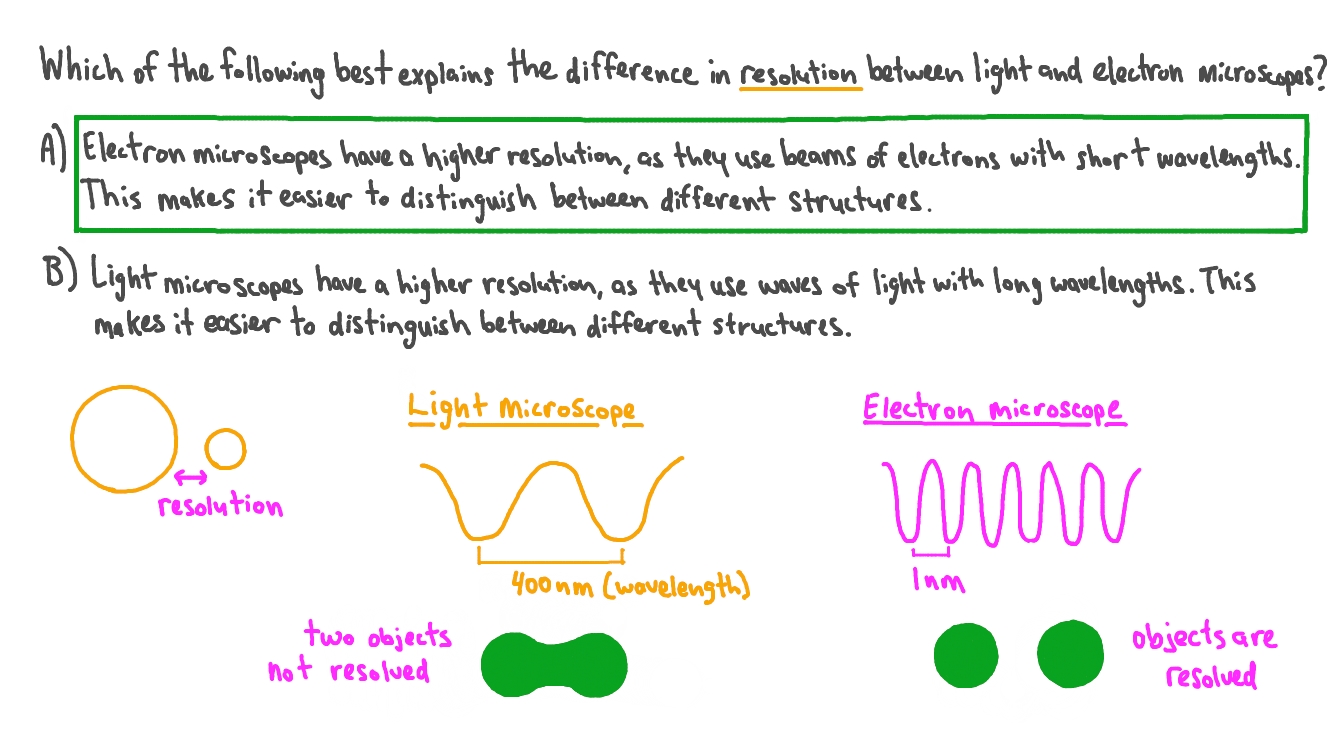 Which of the following best explains the difference in resolution between light and electron microscopes?
A) Electron microscopes have a higher resolution, as they use beams of electrons with short wavelengths.
This makes it easier to distinguish between different structures.
B) Light microscopes have a higher resolution, as they use waves of light with long wavelengths. This
makes it easier to distinguish between different structures.
resolution
Light microscope
400nm (wavelength)
two objects
not resolved
Electron microscope
1nm
objects are
resolved